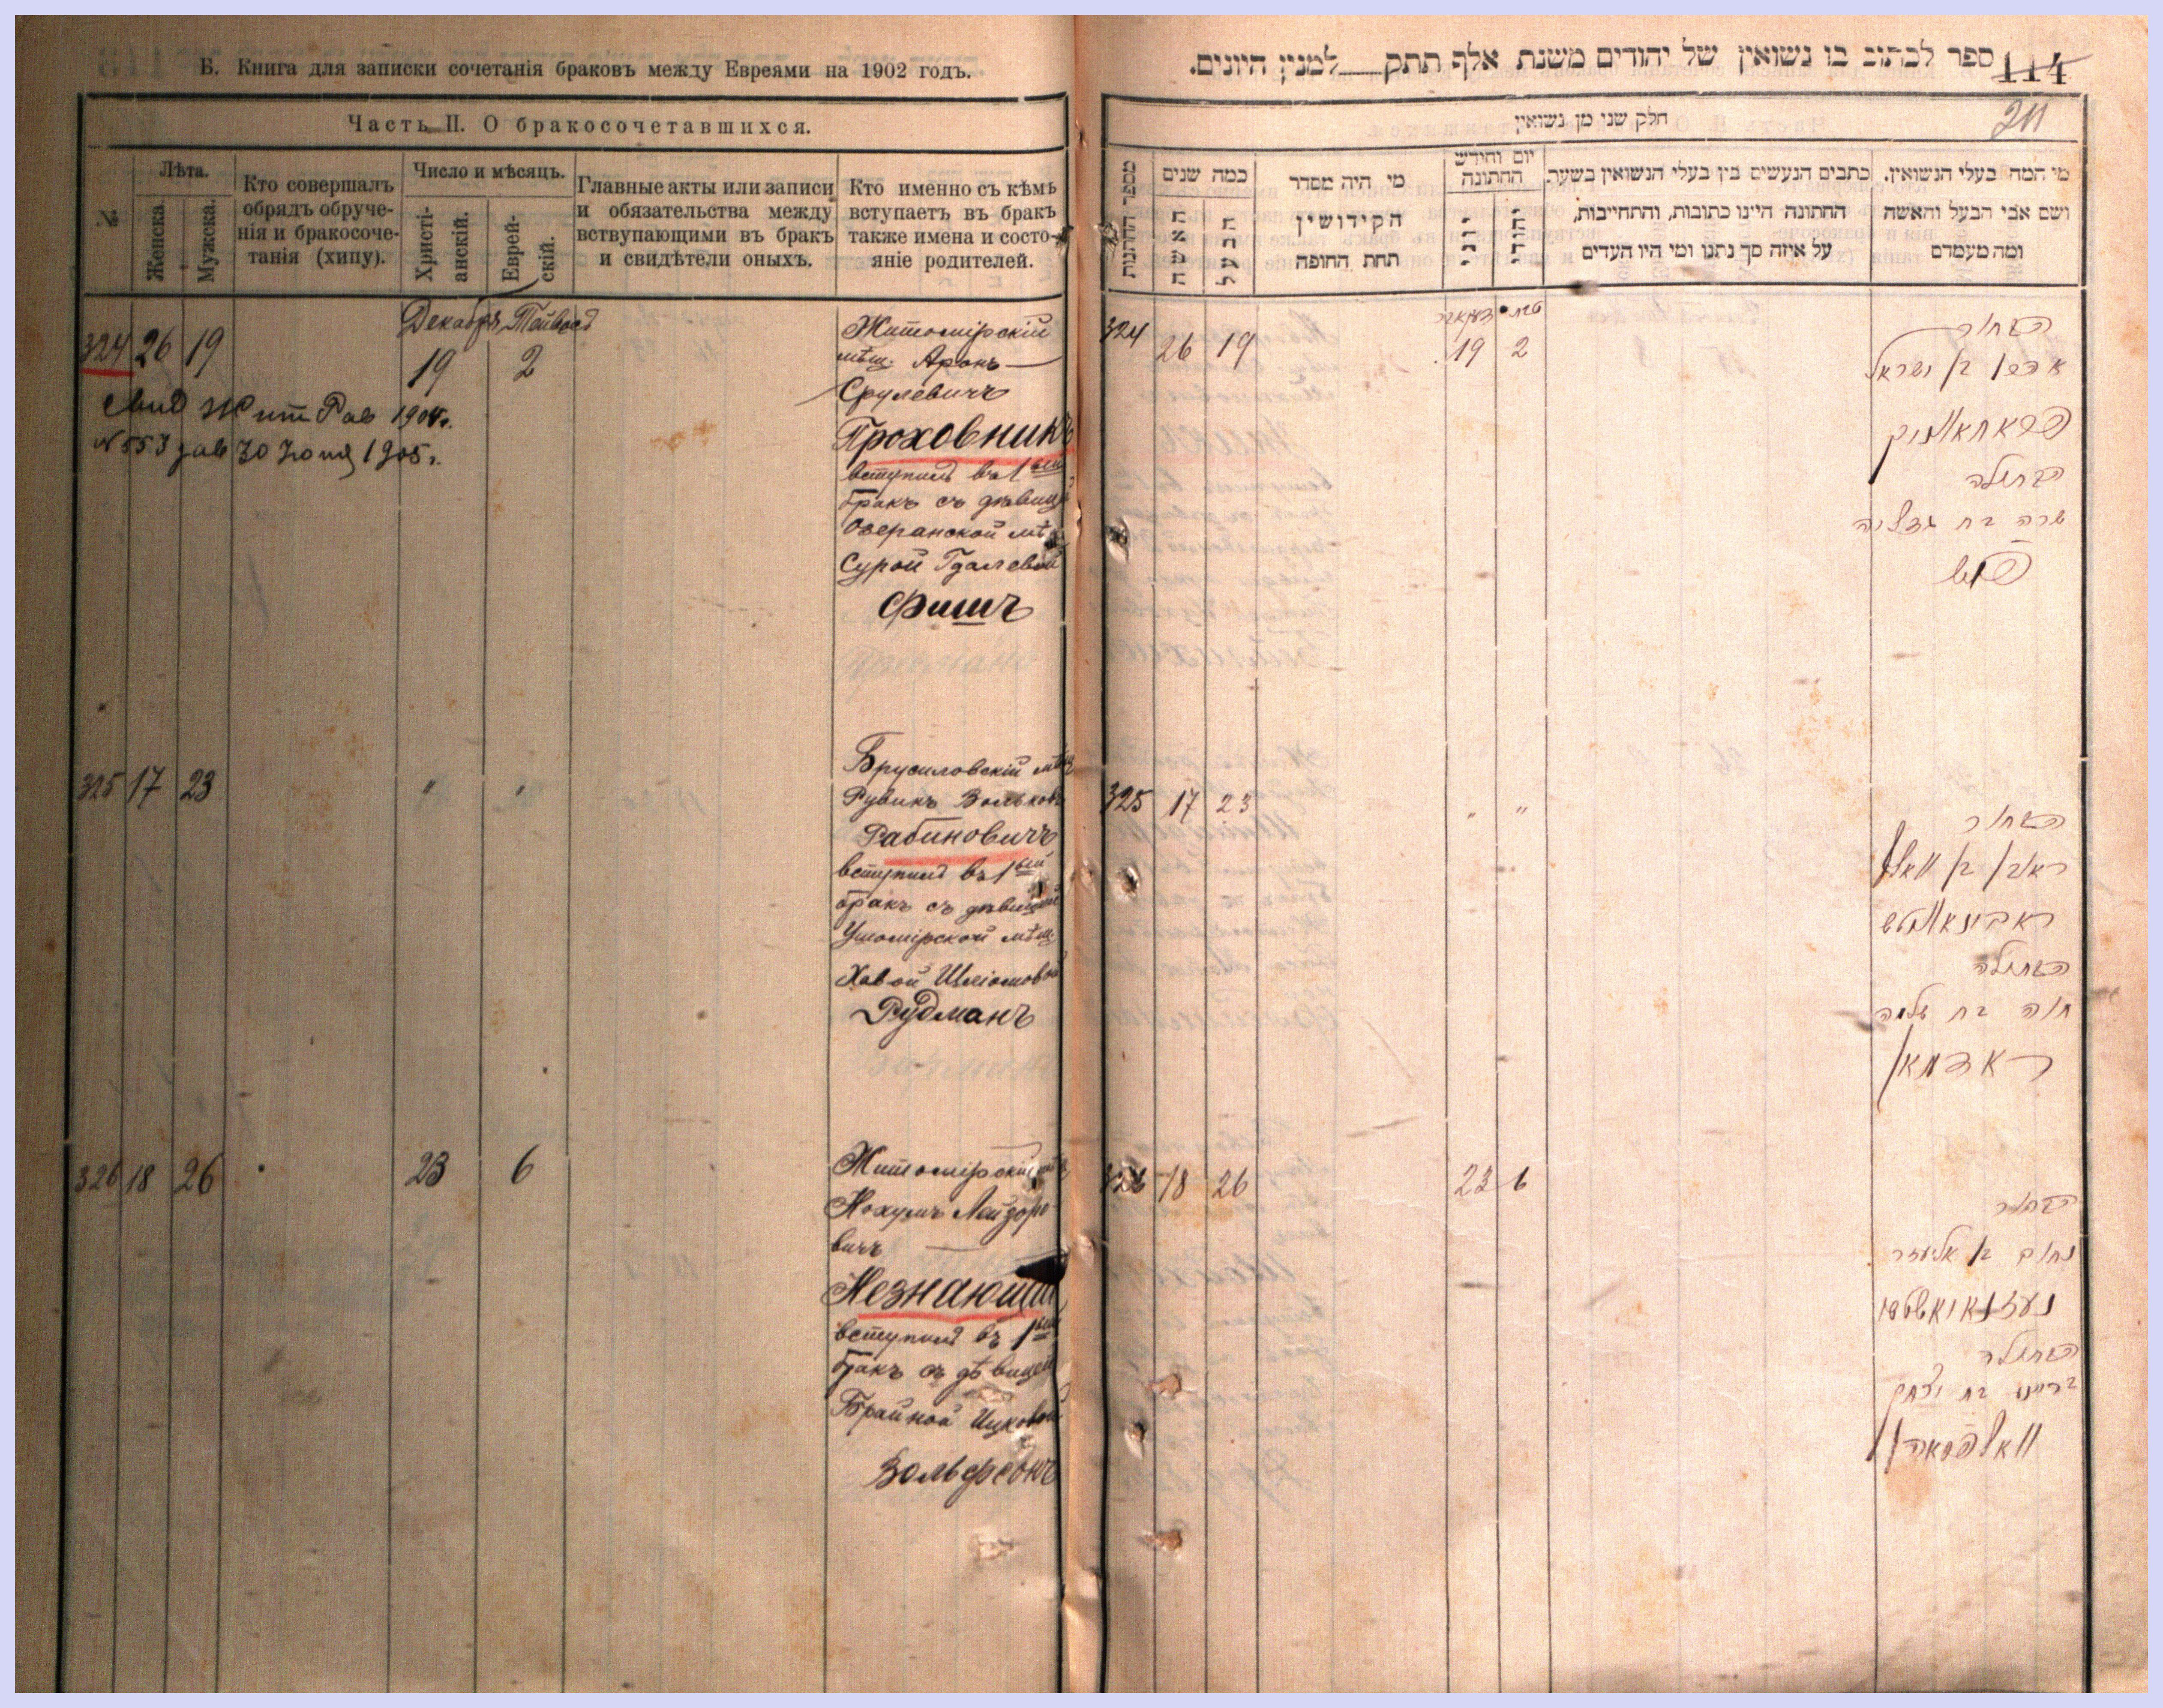 Б. Книга для записки сочетанія браковъ между Евреями на 1902 годъ.
Часть II. О бракосочетавшихся.
№
Лѣта.
Женска.
Мужска.
Кто совершалъ
обрядъ обруче-
нія и бракосоче-
танія (хипу).
Число и мѣсяцъ.
Христі-
анскій.
Еврей-
скій.
Главные акты или записи
и обязательства между
вствупающими въ бракъ
и свидѣтели оныхъ.
Кто именно съ кѣмъ
вступаетъ въ бракъ
также имена и состо-
яніе родителей.
324 26 19
Декабрь
19 2
Житомірскій
мѣщ. Аронъ
Срулевичъ
Проховникъ
вступилъ въ 1ый
бракъ съ дѣвицей
Озеранской мѣщ
Сурой Гдалевой
Фишъ
1905 г.
N 553 30 Іюня 1905 г.
325 17 23 " "
Брусиловскій мѣщ
Рувинъ Вольковъ
Рабиновичъ
вступилъ въ 1ый
бракъ съ дѣвицей
Ушомірской мѣщ.
Хавой Шліомовой
Рудманъ
326 18 26 23 6
Житомірскій мѣщ
Нохумъ Лейзоро-
вичъ
Незнающій
вступилъ въ 1ый
бракъ съ дѣвицей
Брайной Ицковой
Вольфсонъ
ספר לכתוב בו נשואין של יהודים משנת אלף תתק למנין היונים.
114
211
חלק שני מן נשואין
מספר החתונות
כמה שנים
האשה
הבעל
מי היה מסדר
הקידושין
תחת החופה
יום וחודש
החתונה
יוני
יהודי
כתבים הנעשים בין בעלי הנשואין בשעת
החתונה היינו כתובות, והתחייבות,
על איזה סך נתנו ומי היו העדים
מי המה בעלי הנשואין.
ושם אבי הבעל והאשה
ומה מעמדם
324 26 19
דעקאבר טבת
19 2
הבחור
אהרן בן ישראל
פראחאווניק
הבתולה
שרה בת גדליה
פיש
325 17 23 " "
הבחור
ראובן בן וואלף
ראבינאוויטש
הבתולה
חוה בת שלמה
רודמאן
326 18 26 23 6
הבחור
נחום בן אליעזר
הבתולה
בריינע בת יצחק
וואלפסאהן